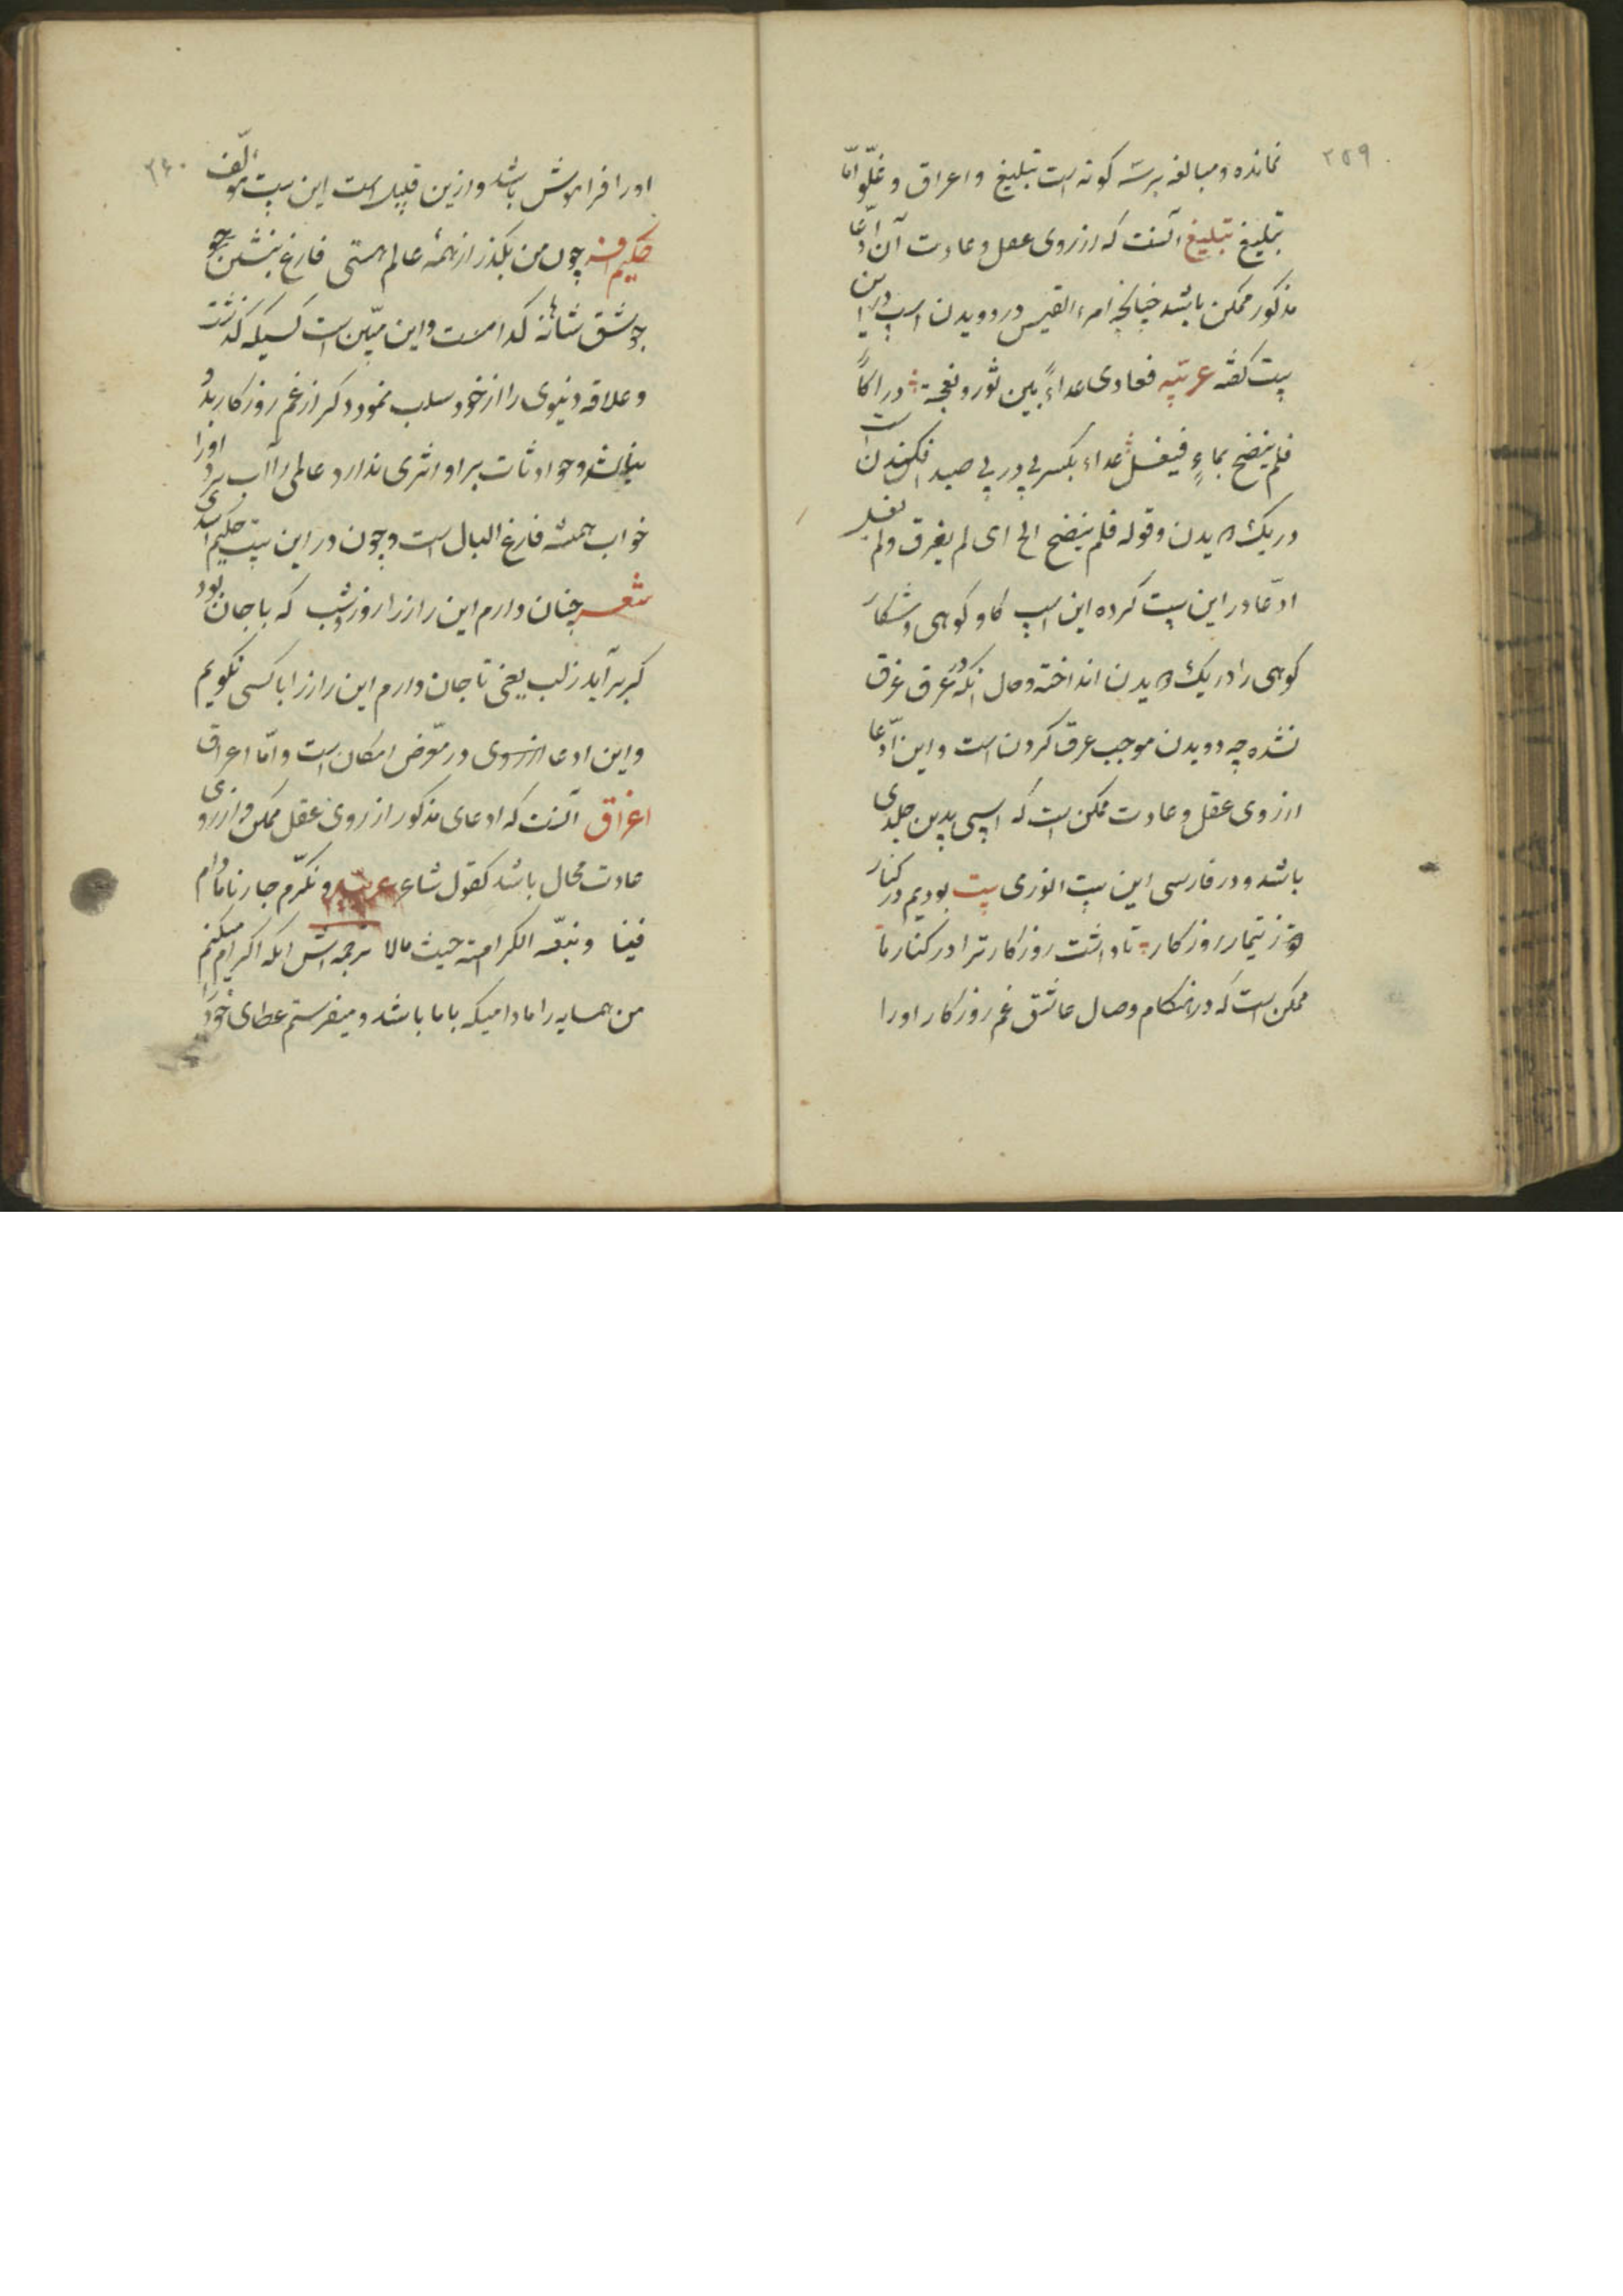 ۲۵۹
نمانده و مبالغه بر سه کونه است تبلیغ و اعراق و غلّو امّا
تبلیغ تبلیغ آنست که از روی عقل و عادت آن ادّعا
مذکور ممکن باشد چنانچه امرء القیس در دویدن اسب در این
بیت کفته عربیّه فعادی عداءً بین ثور و نعجة دراکاً
فلم ینضح بماءٍ فیغسل عداء بکسر پی در پی صید افکندن است
در یک دویدن و قوله فلم ینضح الخ ای لم یعرق ولم یغسل
ادّعا در این بیت کرده این اسب کاو کوهی و شکار
کوهی را در یک دویدن انداخته و حال انکه در عرق غرق
نشده چه دویدن موجب عرق کردن است و این ادّعا
از روی عقل و عادت ممکن است که اسبی بدین جلدی
باشد و در فارسی این بیت انوری بیت بودیم در کنار
ز تیمار روزکار تا داشت روزکار ترا در کنار ما
ممکن است که در هنکام وصال عاشق غم روزکار او را
۲۶۰
او را فراموش باشد و ازین قبیل است این بیت مؤلّف
چون من بکذر از همهٔ عالم هستی فارغ بنشین
کدامست و این مبیّن است کسیکه کذشت
و علاقه دنیوی را از خود سلب نمود دکر از غم روزکار بدو
نباشد و حوادثات بر او اثری ندارد عالمی را آب برد او را
خواب همیشه فارغ البال است و چون در این بیت حکیم اسدی
شعر چنان دارم این راز را روز و شب که با جان بود
کر برآید ز لب یعنی تا جان دارم این راز را با کسی نکویم
و این ادعا از روی در معرض امکان است و امّا اعراق
اغراق آنست که ادعای مذکور از روی عقل ممکن و از روی
عادت محال باشد کقول شاعر عربیّه و نکرّم جارنا مادام
فینا و نتبعه الکرامة حیث مالا ترجمه اش انکه اکرام میکنم
من همسایه را مادامیکه با ما باشد و میفرستم عطای خود را